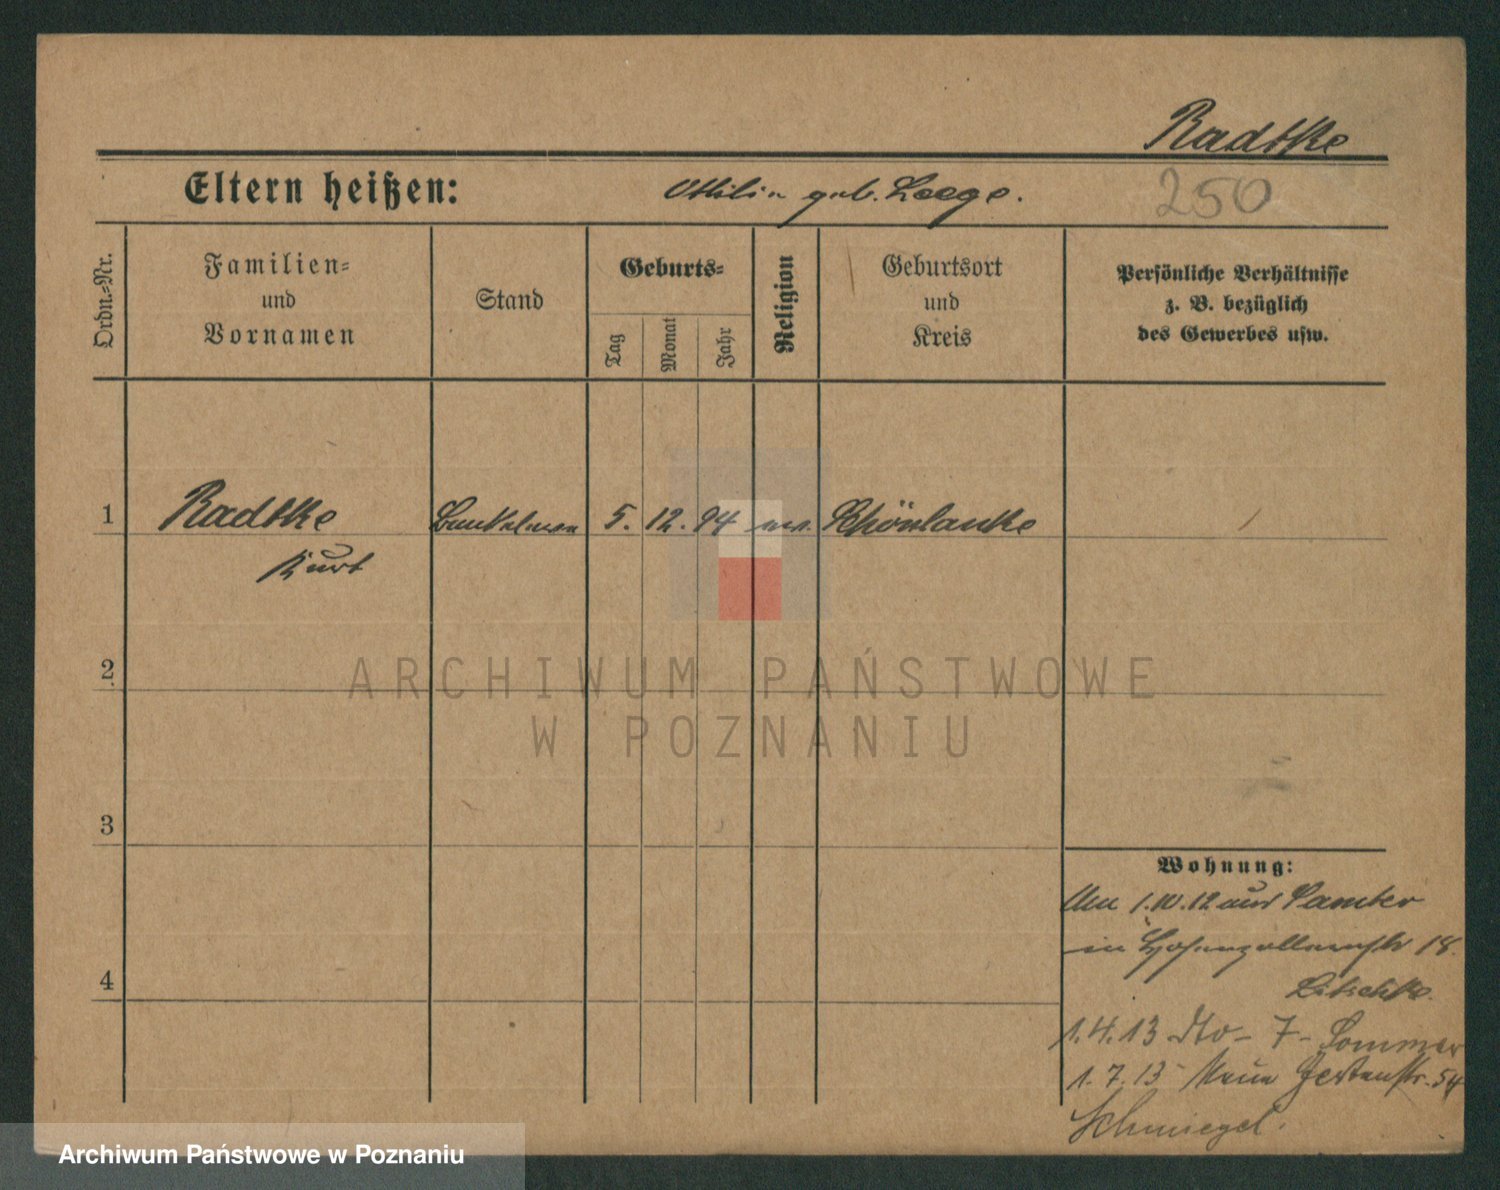 Radtke
Eltern heißen: Ottilie geb. Leege.
250
Ordn.=Nr.
Familien=
und
Vornamen
Stand
Geburts=
Tag
Monat
Jahr
Religion
Geburtsort
und
Kreis
Persönliche Verhältnisse
z. B. bezüglich
des Gewerbes usw.
1 Radtke 5. 12. 94 Schönlanke
Kurt
2
3
4
ARCHIWUM PAŃSTWOWE
W POZNANIU
Wohnung:
1.10.12 aus Samter
in Hohenzollernstr 18.
1.4.13 dto- 7- Sommer
1.7.13 Neue Gartenstr. 54
Schmiegel.
Archiwum Państwowe w Poznaniu